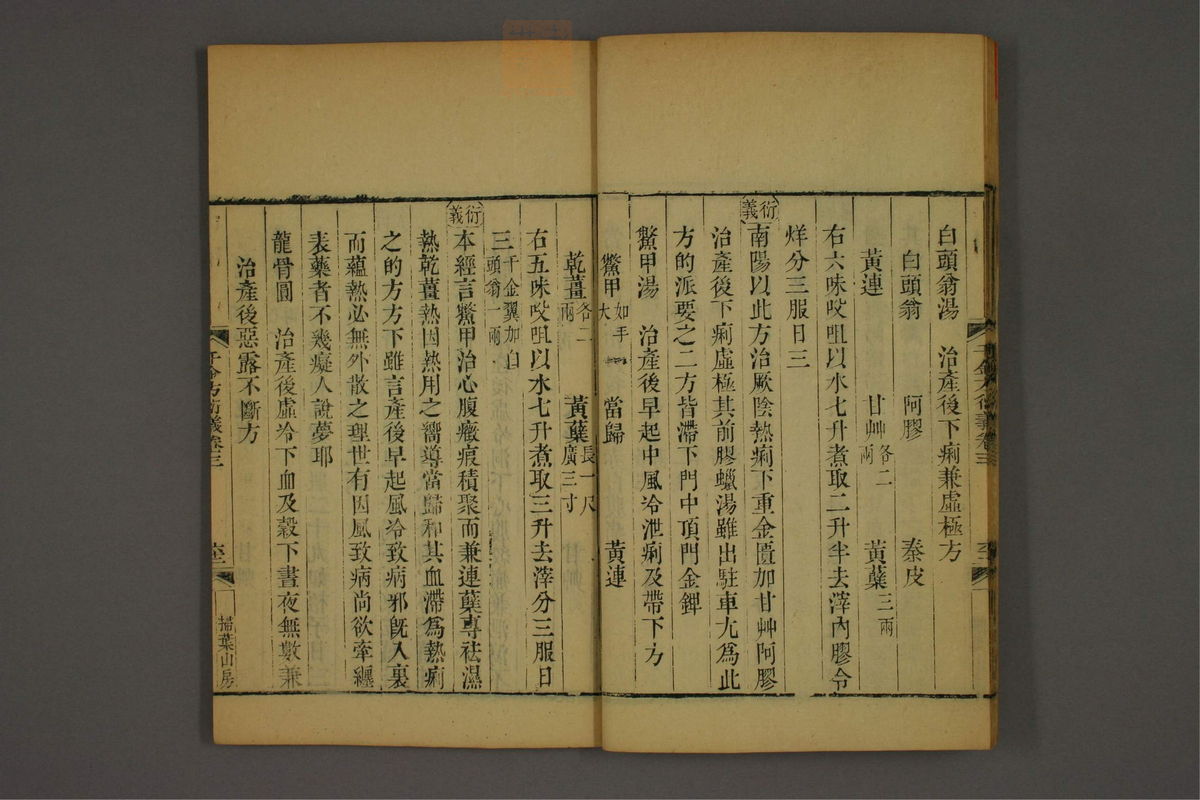 白頭翁湯　治產後下痢兼虛極方
白頭翁　阿膠　秦皮
黃連　甘艸各二兩　黃蘗三兩
右六味㕮咀以水七升煮取二升半去滓內膠令
烊分三服日三
衍義
南陽以此方治厥陰熱痢下重金匱加甘艸阿膠
治產後下痢虛極其前膠蠟湯雖出駐車尢爲此
方的派要之二方皆滯下門中頂門金鎞
鱉甲湯　治產後早起中風冷泄痢及帶下方
鱉甲如手大　當歸　黃連
乾薑各二兩　黃蘗長一尺廣三寸
右五味㕮咀以水七升煮取三升去滓分三服日
三千金翼加白頭翁一兩
衍義
本經言鱉甲治心腹癥瘕積聚而兼連蘗專祛濕
熱乾薑熱因熱用之嚮導當歸和其血滯爲熱痢
之的方方下雖言產後早起風冷致病邪旣入裏
而蘊熱必無外散之理世有因風致病尙欲牽纏
表藥者不幾癡人說夢耶
龍骨圓　治產後虛冷下血及穀下晝夜無數兼
治產後惡露不斷方
千金方衍義卷三
掃葉山房